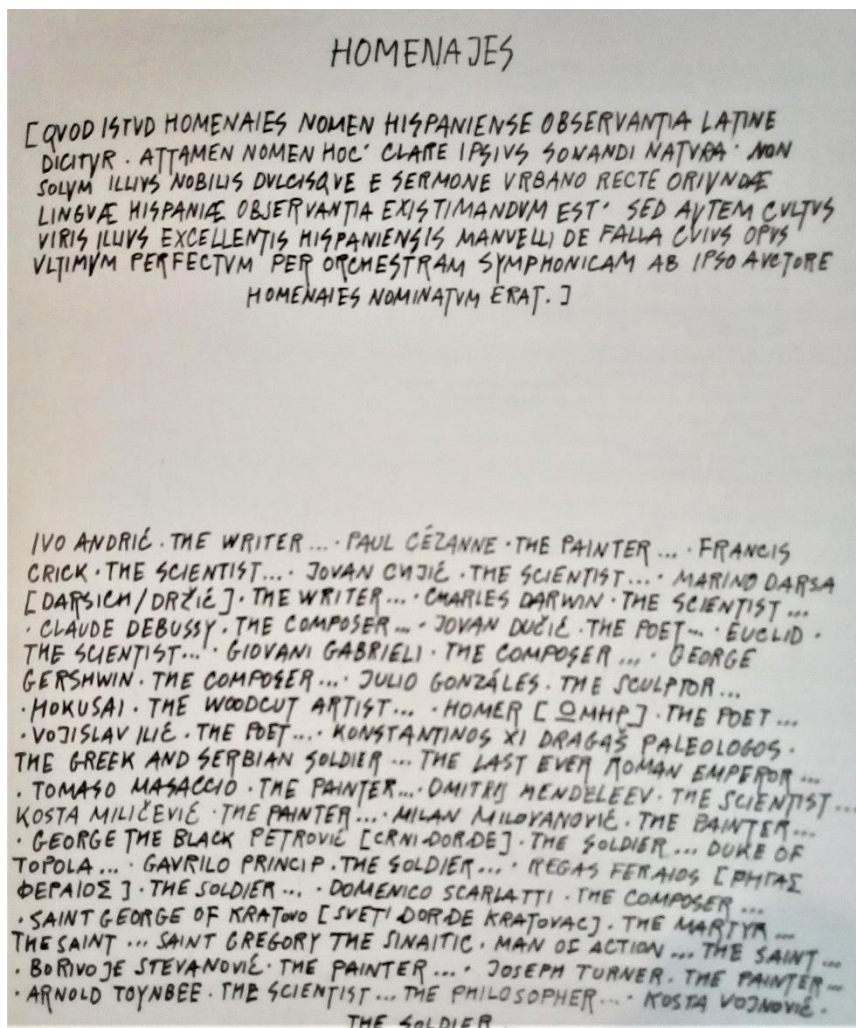 HOMENAJES
[QVOD ISTVD HOMENAIES NOMEN HISPANIENSE OBSERVANTIA LATINE
DICITVR · ATTAMEN NOMEN HOC' CLARE IPSIVS SONANDI NATVRA · NON
SOLVM ILLIVS NOBILIS DVLCISQVE E SERMONE VRBANO RECTE ORIVNDÆ
LINGVÆ HISPANIÆ OBSERVANTIA EXISTIMANDVM EST' SED AVTEM CVLTVS
VIRIS ILLIVS EXCELLENTIS HISPANIENSIS MANVELLI DE FALLA CVIVS OPVS
VLTIMVM PERFECTVM PER ORCHESTRAM SYMPHONICAM AB IPSO AVCTORE
HOMENAIES NOMINATVM ERAT.]
IVO ANDRIĆ · THE WRITER ... · PAUL CÉZANNE · THE PAINTER ... · FRANCIS
CRICK · THE SCIENTIST ... · JOVAN CVIJIĆ · THE SCIENTIST ... · MARINO DARSA
[DARSICH/DRŽIĆ] · THE WRITER ... · CHARLES DARWIN · THE SCIENTIST ...
· CLAUDE DEBUSSY · THE COMPOSER ... · JOVAN DUČIĆ · THE POET ... · EUCLID ·
THE SCIENTIST ... · GIOVANI GABRIELI · THE COMPOSER ... · GEORGE
GERSHWIN · THE COMPOSER ... · JULIO GONZÁLES · THE SCULPTOR ...
· HOKUSAI · THE WOODCUT ARTIST ... · HOMER [ΩMHP] · THE POET ...
· VOJISLAV ILIĆ · THE POET ... · KONSTANTINOS XI DRAGAŠ PALEOLOGOS ·
THE GREEK AND SERBIAN SOLDIER ... THE LAST EVER ROMAN EMPEROR ...
· TOMASO MASACCIO · THE PAINTER ... · DMITRIJ MENDELEEV · THE SCIENTIST ...
KOSTA MILIČEVIĆ · THE PAINTER ... · MILAN MILOVANOVIĆ · THE PAINTER ...
· GEORGE THE BLACK PETROVIĆ [CRNI ĐORĐE] · THE SOLDIER ... DUKE OF
TOPOLA ... · GAVRILO PRINCIP · THE SOLDIER ... · REGAS FERAIOS [ΡΗΓΑΣ
ΦΕΡΑΙΟΣ] · THE SOLDIER ... · DOMENICO SCARLATTI · THE COMPOSER ...
· SAINT GEORGE OF KRATOVO [SVETI ĐORĐE KRATOVAC] · THE MARTYR ...
THE SAINT ... SAINT GREGORY THE SINAITIC · MAN OF ACTION ... THE SAINT ...
· BORIVOJE STEVANOVIĆ · THE PAINTER ... · JOSEPH TURNER · THE PAINTER ...
· ARNOLD TOYNBEE · THE SCIENTIST ... THE PHILOSOPHER ... · KOSTA VOJNOVIĆ ·
THE SOLDIER